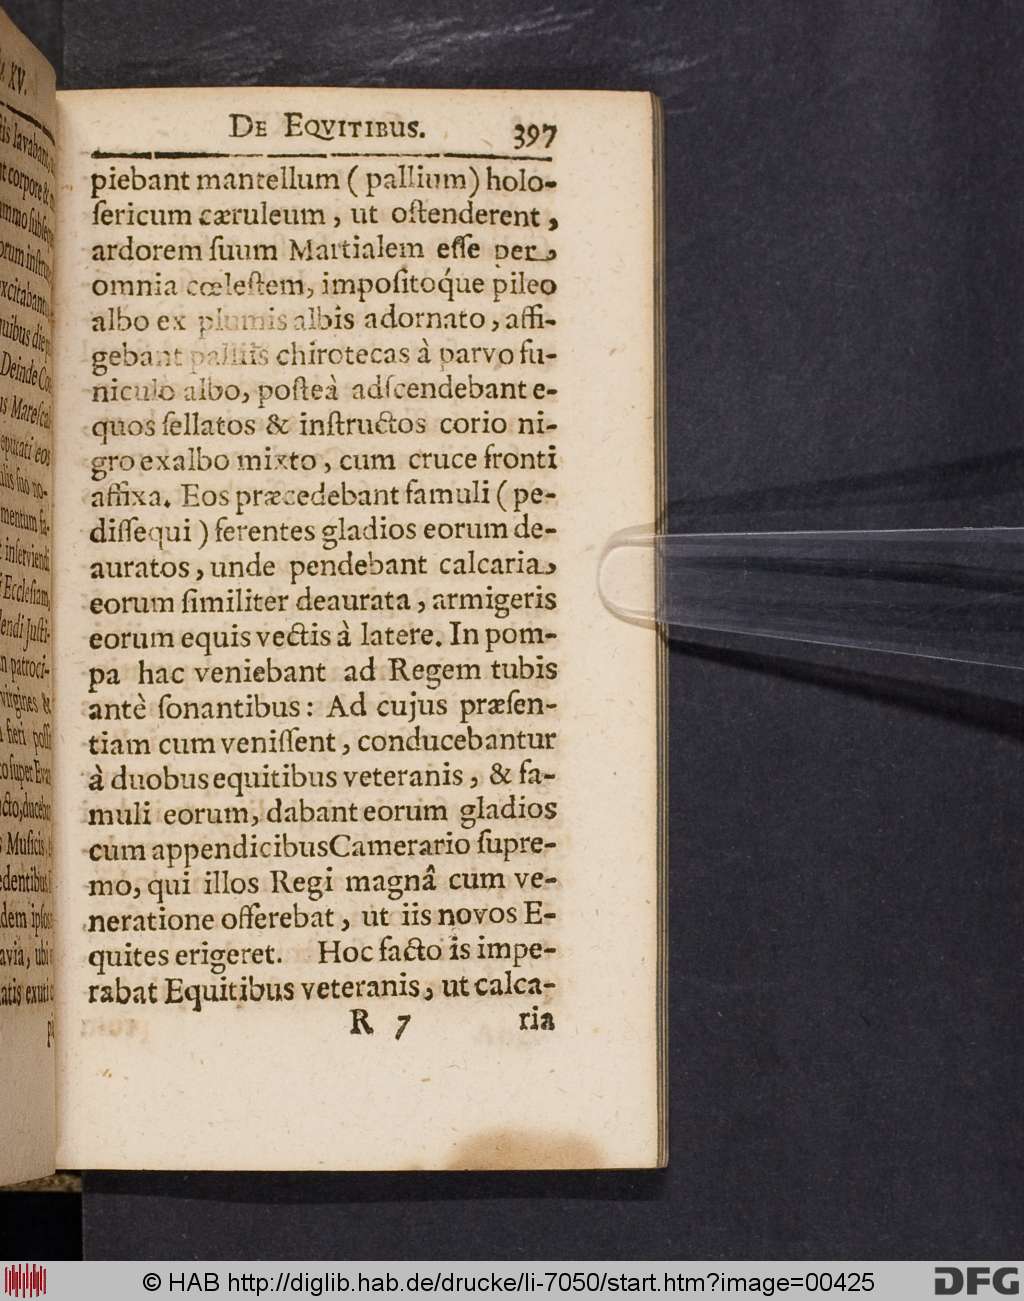 DE EQVITIBUS. 397
piebant mantellum ( pallium) holo-
ſericum cæruleum , ut oſtenderent ,
ardorem ſuum Martialem eſſe per
omnia cœleſtem, impoſitoq́ue pileo
albo ex plumis albis adornato , affi-
gebant palliis chirotecas à parvo fu-
niculo albo, poſteà adſcendebant e-
quos ſellatos & inſtructos corio ni-
gro ex albo mixto , cum cruce fronti
affixa. Eos præcedebant famuli ( pe-
diſſequi ) ferentes gladios eorum de-
auratos , unde pendebant calcaria,
eorum ſimiliter deaurata , armigeris
eorum equis vectis à latere. In pom-
pa hac veniebant ad Regem tubis
antè ſonantibus : Ad cujus præſen-
tiam cum veniſſent , conducebantur
à duobus equitibus veteranis , & fa-
muli eorum, dabant eorum gladios
cum appendicibus Camerario ſupre-
mo, qui illos Regi magnâ cum ve-
neratione offerebat , ut iis novos E-
quites erigeret. Hoc facto is impe-
rabat Equitibus veteranis, ut calca-
R 7 ria
XV.
lavaban
corpore &
excitaban
quibus die
Deinde
Mareſcal
eos
inſerviendi
Eccleſiam,
patroci-
virgines &
fieri poſſ
ſuper
Muſicis
© HAB http://diglib.hab.de/drucke/li-7050/start.htm?image=00425
DFG